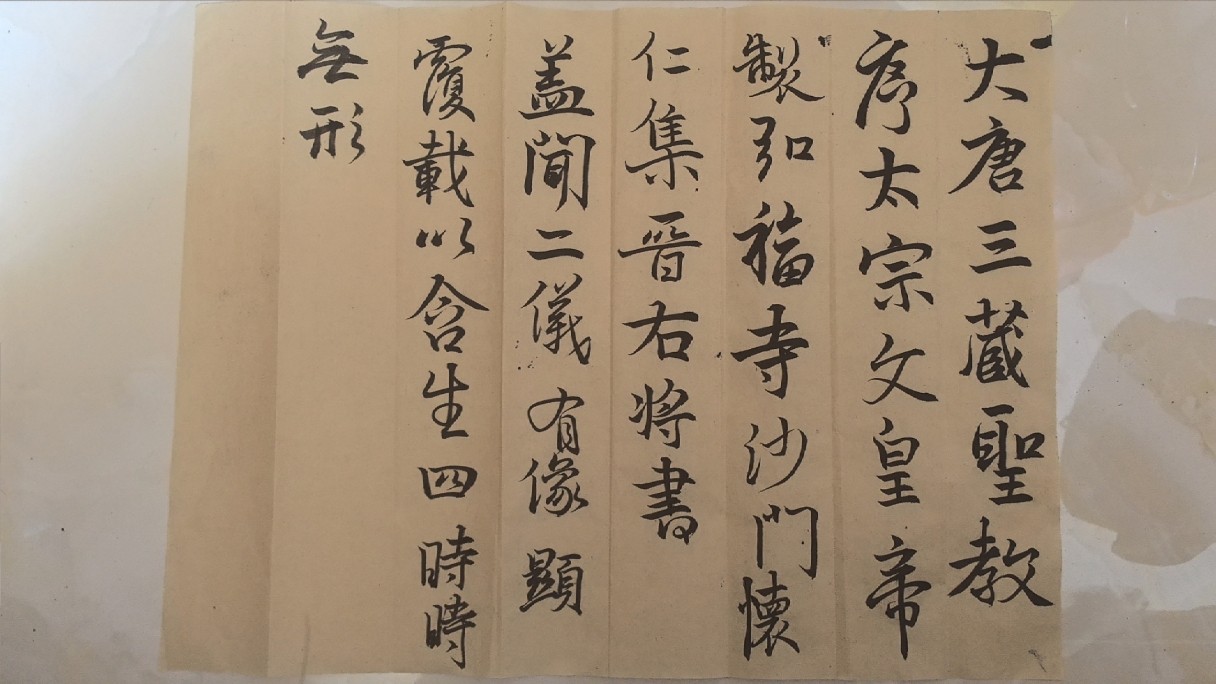 大唐三藏聖教
序太宗文皇帝
製弘福寺沙門懷
仁集晉右將書
蓋聞二儀有像顯
覆載以含生四時時
無形